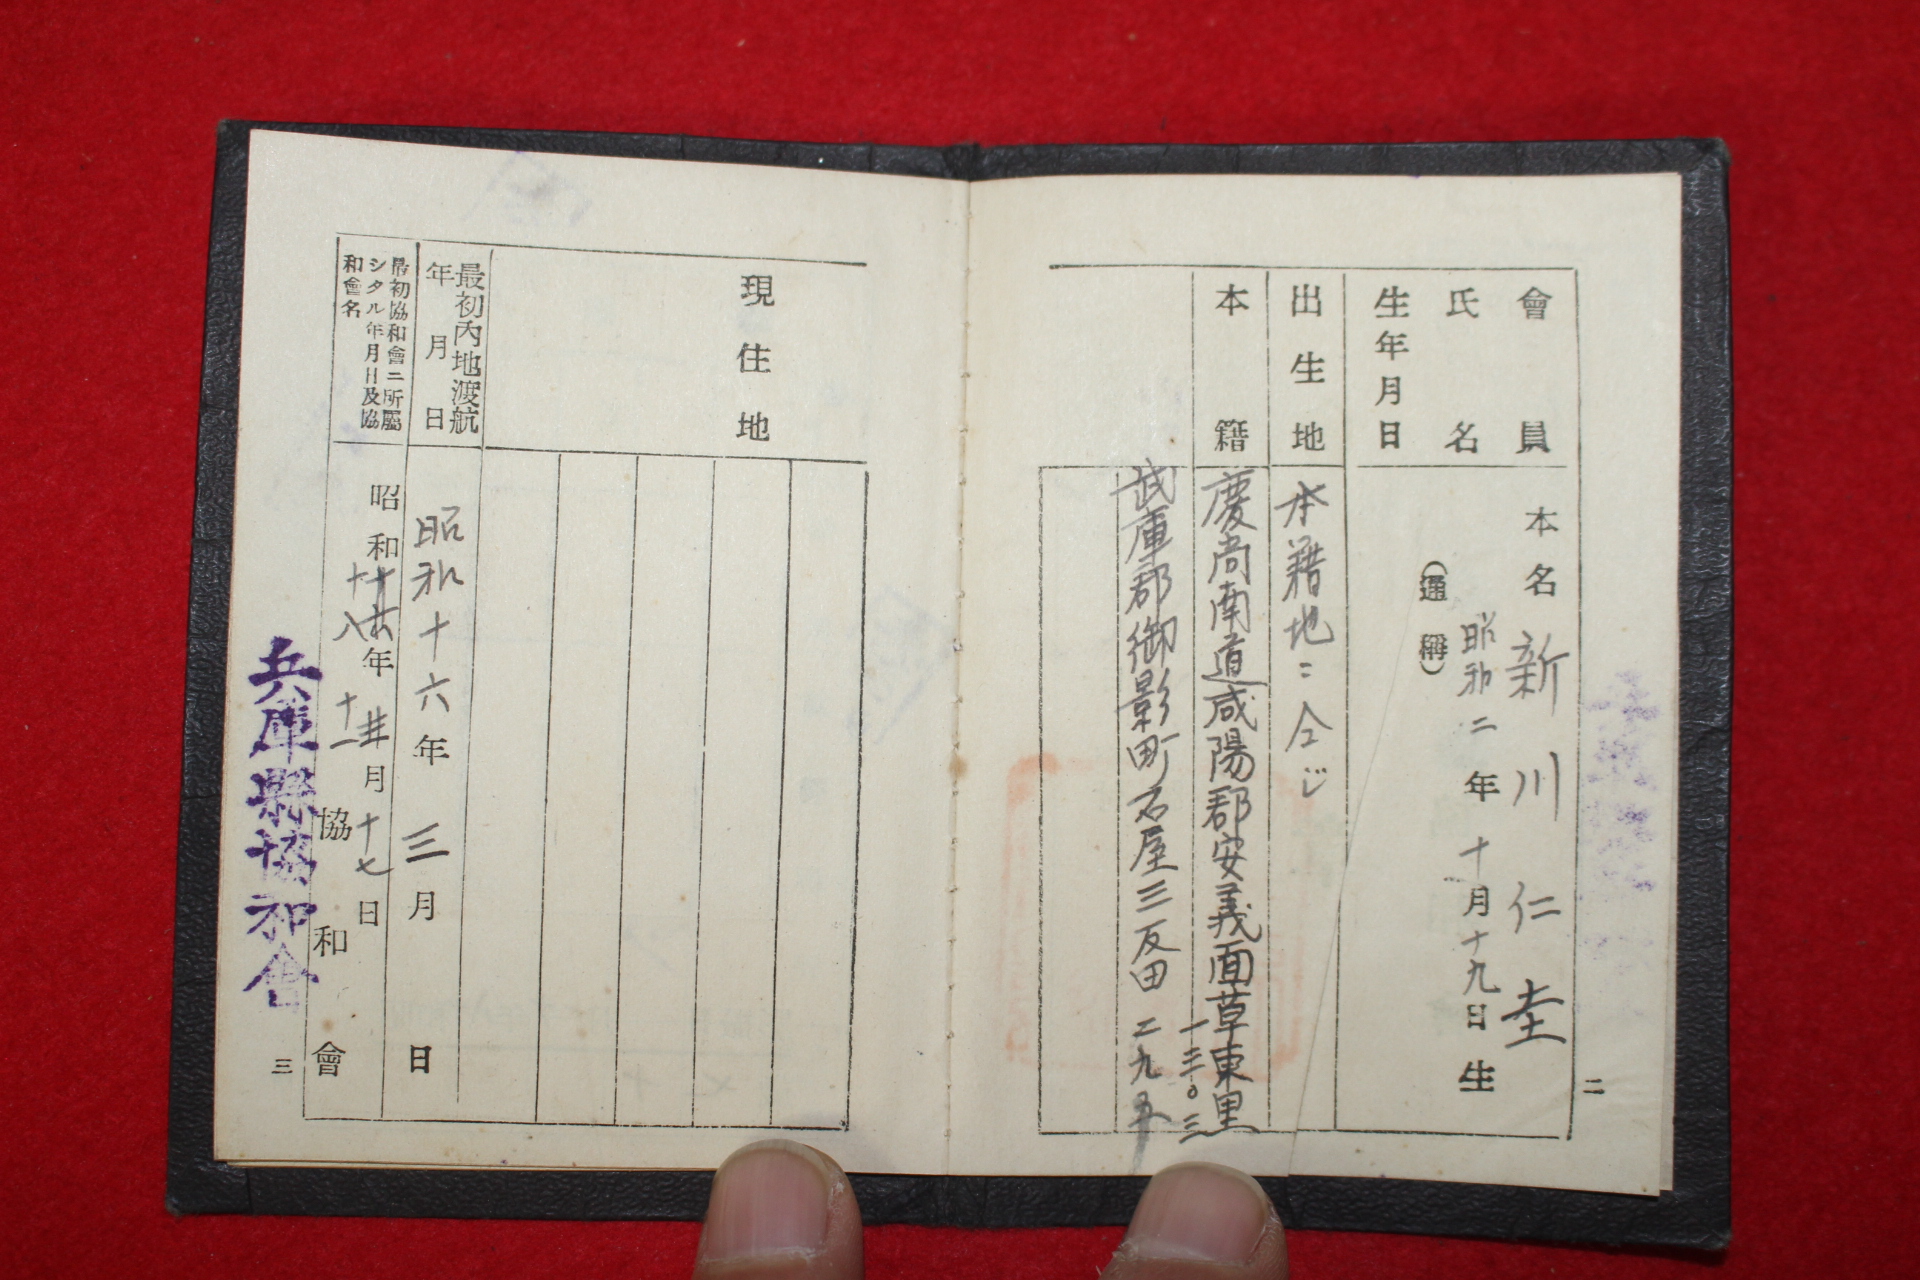 二
會員
本名 新川仁圭
氏名
(通稱)
生年月日
昭和二年十月十九日生
出生地
本籍地ニ仝じ
本籍
慶尚南道咸陽郡安義面草東里
一三〇三
武庫郡御影町石屋三反田二九五
現住地
最初內地渡航
年月日
昭和十六年三月日
最初協和會ニ所屬
シタル年月日及協
和會名
昭和十六年 月十七日
十八 十一
協和會
兵庫縣協和會
三